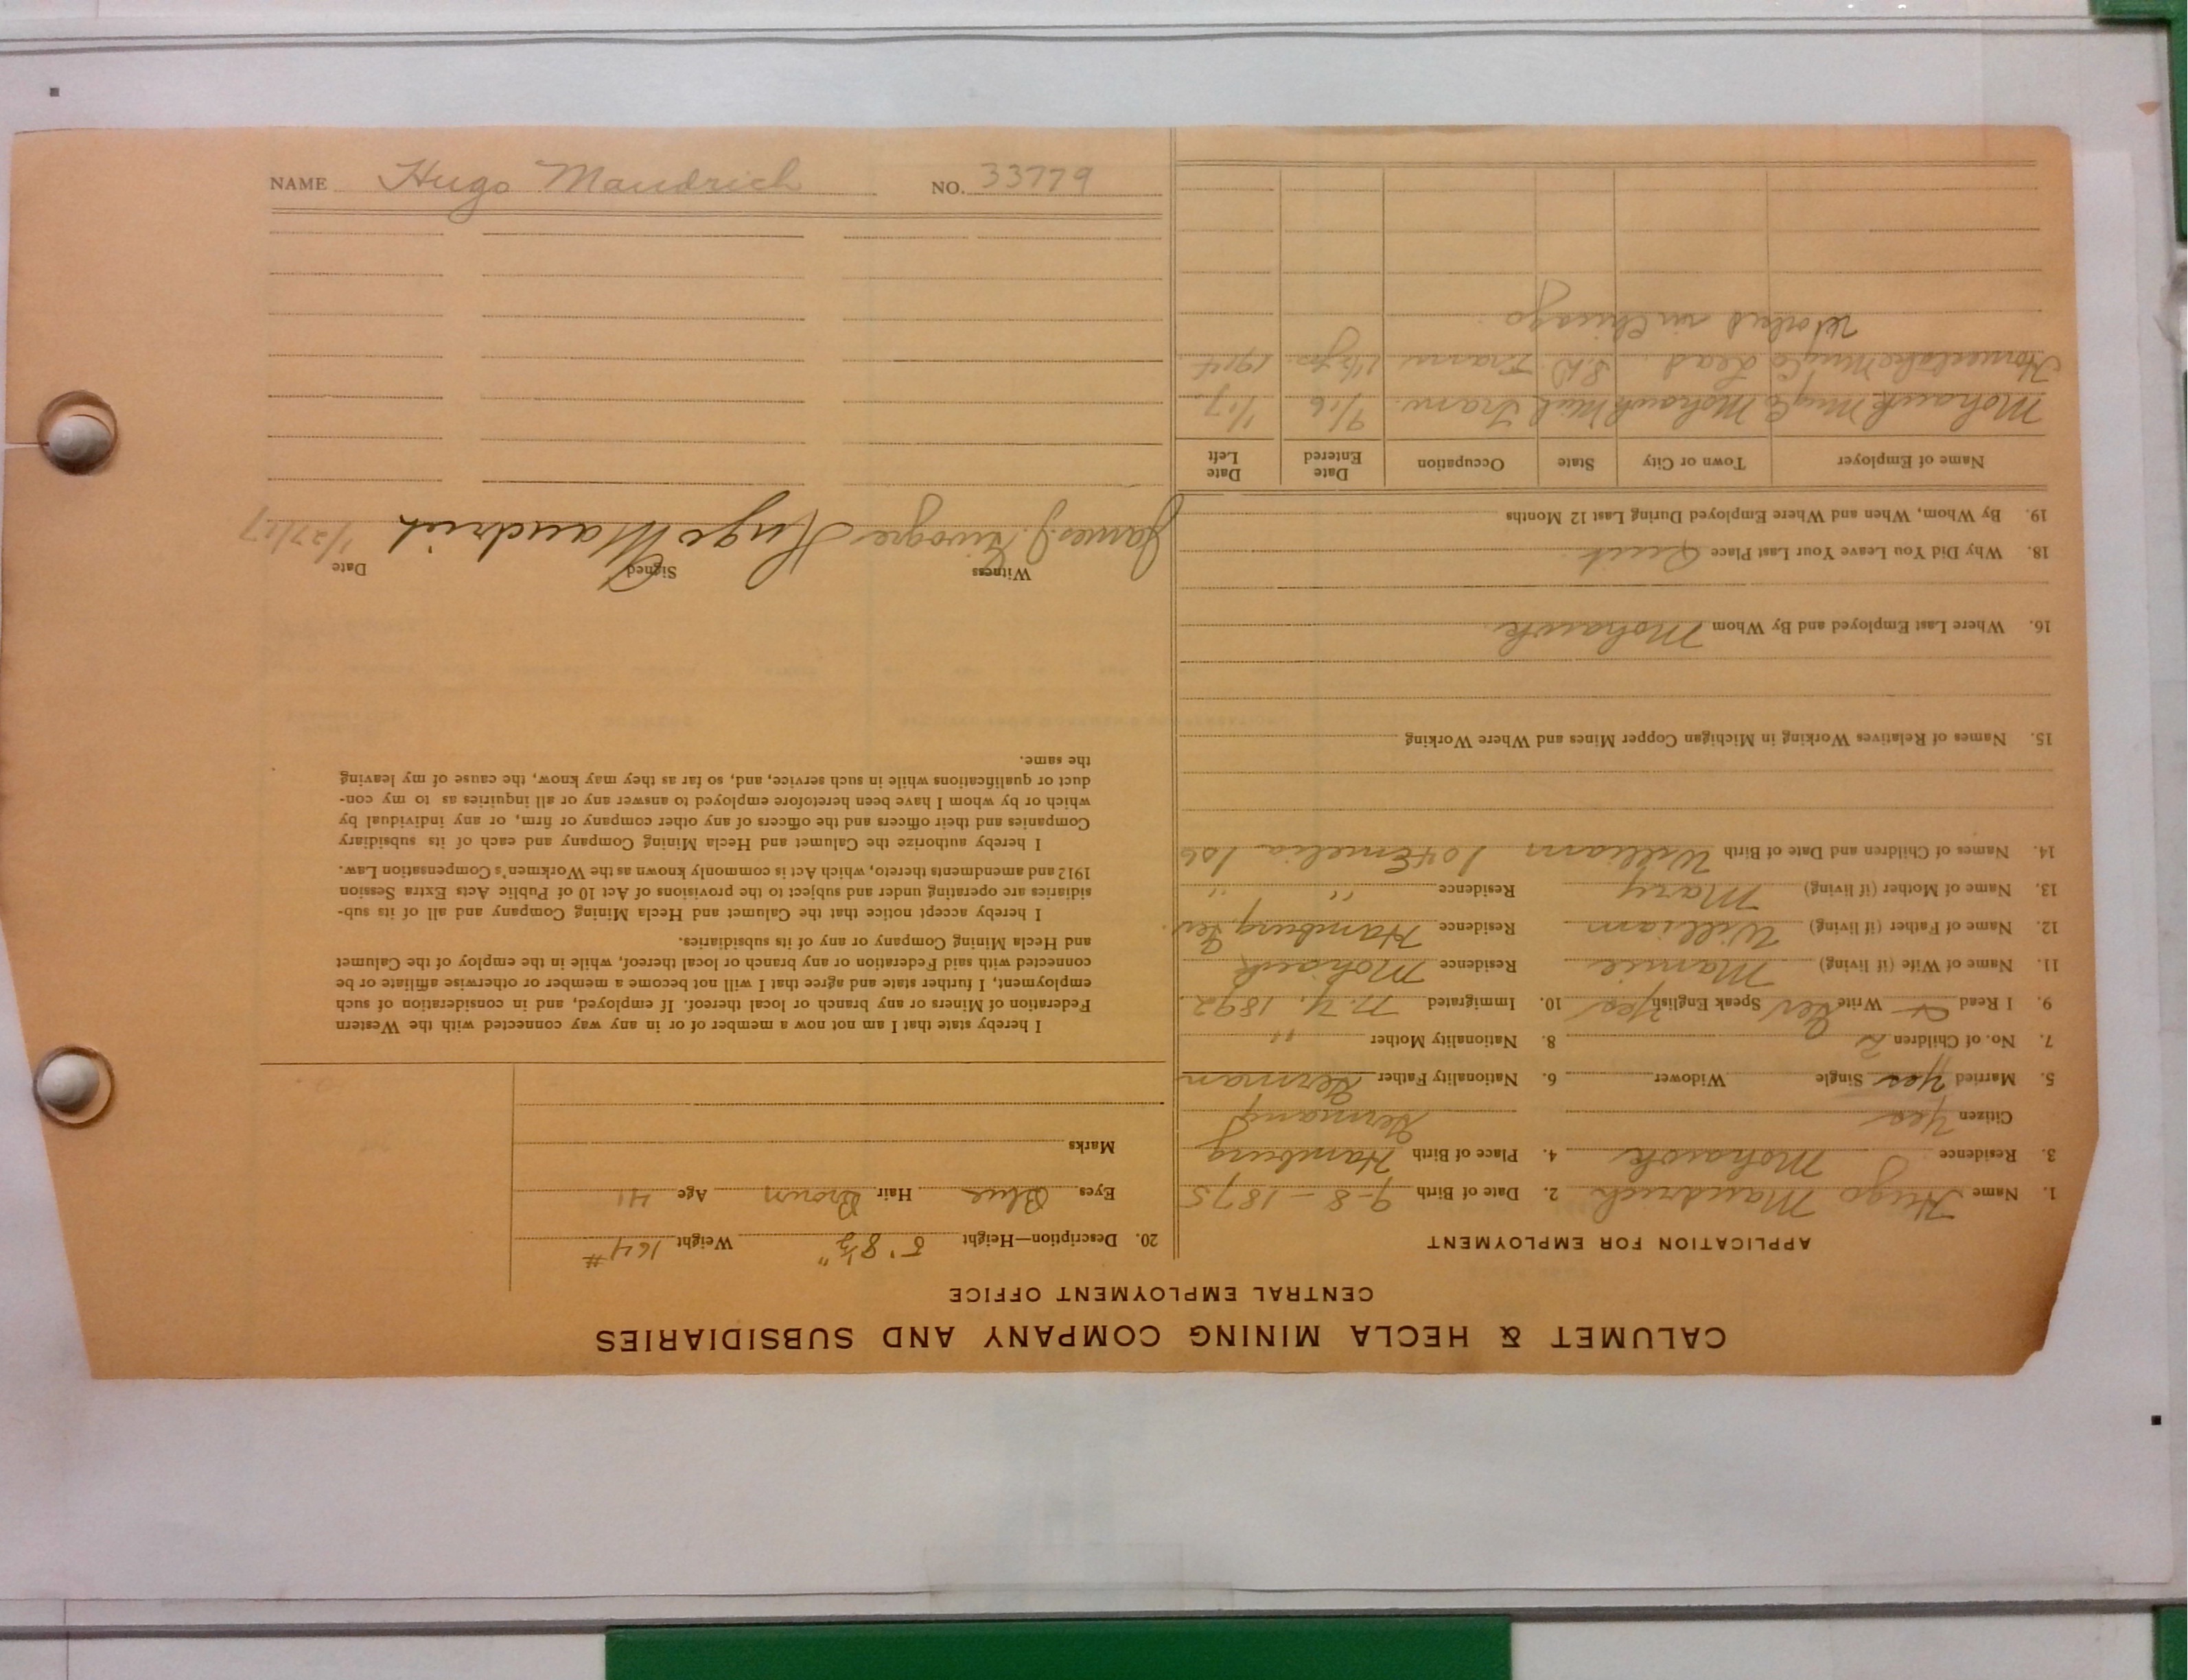 NAME Hugo Maudrich NO. 33779
CALUMET & HECLA MINING COMPANY AND SUBSIDIARIES
CENTRAL EMPLOYMENT OFFICE
APPLICATION FOR EMPLOYMENT
1. Name Hugo Maudrich 2. Date of Birth 9-8-1875
3. Residence Mohawk 4. Place of Birth Hamburg
Citizen Yes Germany
5. Married Yes Single Widower 6. Nationality Father German
7. No. of Children 2 8. Nationality Mother "
9. I Read & Write Ger Speak English Yes 10. Immigrated N.Y. 1892
11. Name of Wife (if living) Mamie Residence Mohawk
12. Name of Father (if living) William Residence Hamburg, Ger.
13. Name of Mother (if living) Mary Residence " "
14. Names of Children and Date of Birth William 104 Emelia 106
15. Names of Relatives Working in Michigan Copper Mines and Where Working
16. Where Last Employed and By Whom Mohawk
18. Why Did You Leave Your Last Place Quit
19. By Whom, When and Where Employed During Last 12 Months
Name of Employer Town or City State Occupation Date Entered Date Left
Mohawk Mng Co Mohawk Mich Tram. 9/16 1/17
Homestake Mng Co Lead S.D. Tram 1 1/2 yrs 1914
Worked in Chicago
20. Description—Height 5' 8 1/2" Weight 164#
Eyes Blue Hair Brown Age 41
Marks
I hereby state that I am not now a member of or in any way connected with the Western
Federation of Miners or any branch or local thereof. If employed, and in consideration of such
employment, I further state and agree that I will not become a member or otherwise affiliate or be
connected with said Federation or any branch or local thereof, while in the employ of the Calumet
and Hecla Mining Company or any of its subsidiaries.
I hereby accept notice that the Calumet and Hecla Mining Company and all of its sub-
sidiaries are operating under and subject to the provisions of Act 10 of Public Acts Extra Session
1912 and amendments thereto, which Act is commonly known as the Workmen's Compensation Law.
I hereby authorize the Calumet and Hecla Mining Company and each of its subsidiary
Companies and their officers and the officers of any other company or firm, or any individual by
which or by whom I have been heretofore employed to answer any or all inquiries as to my con-
duct or qualifications while in such service, and, so far as they may know, the cause of my leaving
the same.
Witness Signed Date
James J. Hugo Maudrich 1/27/17